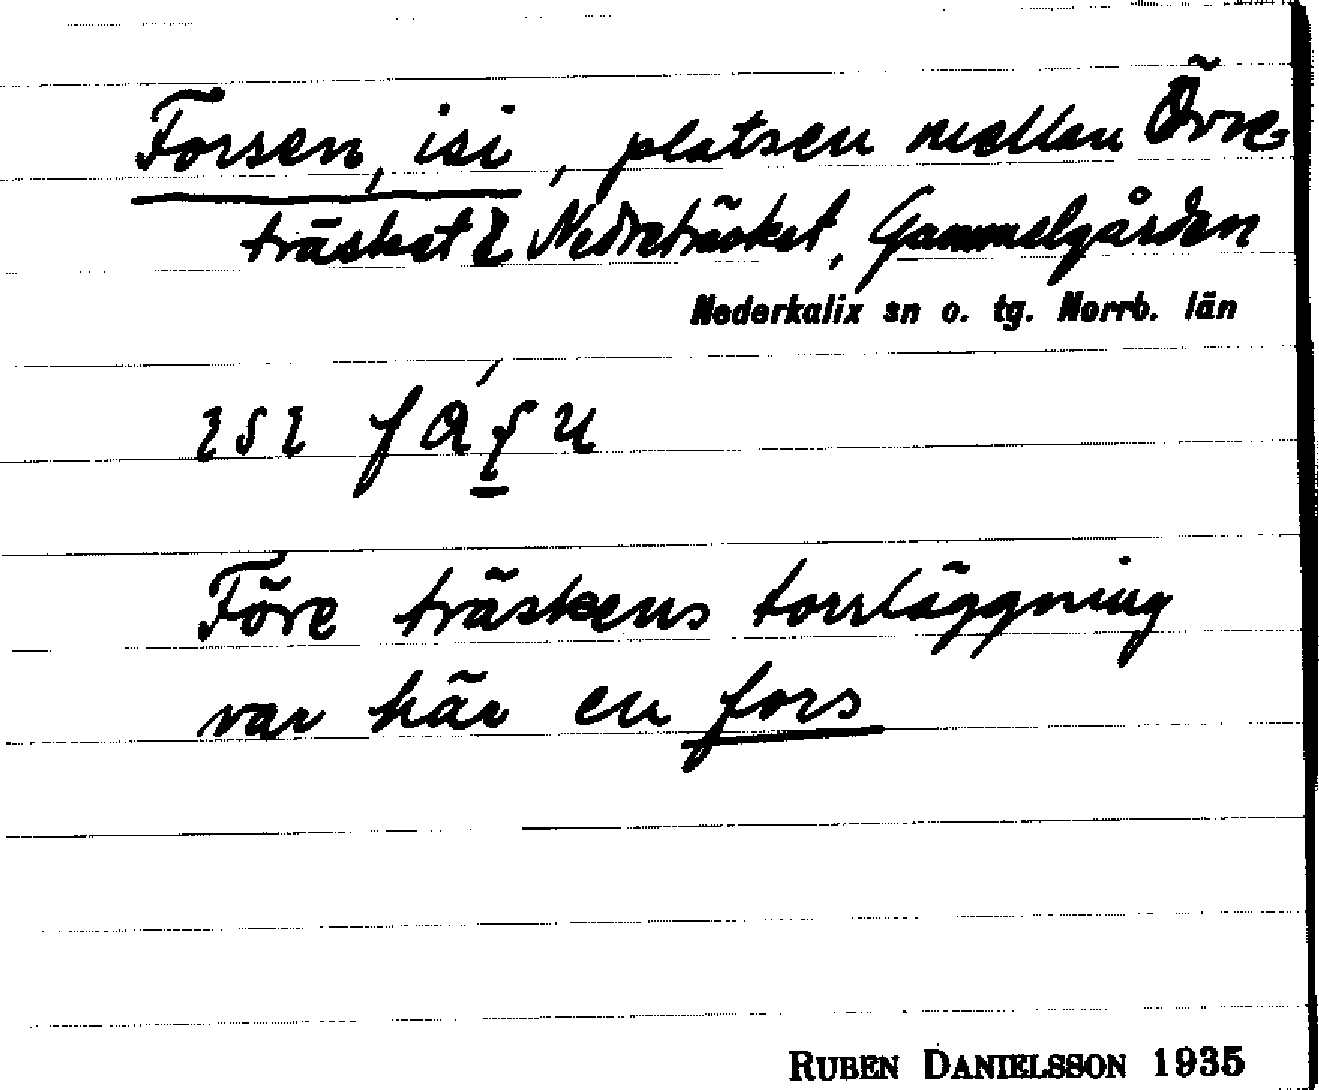 Forsen, isi, platsen mellan Övre-
träsket & Nedreträsket, Gammelgården
Nederkalix sn o. tg. Norrb. län
ısı
Före träskens torrläggning
var här en fors
RUBEN DANIELSSON 1935